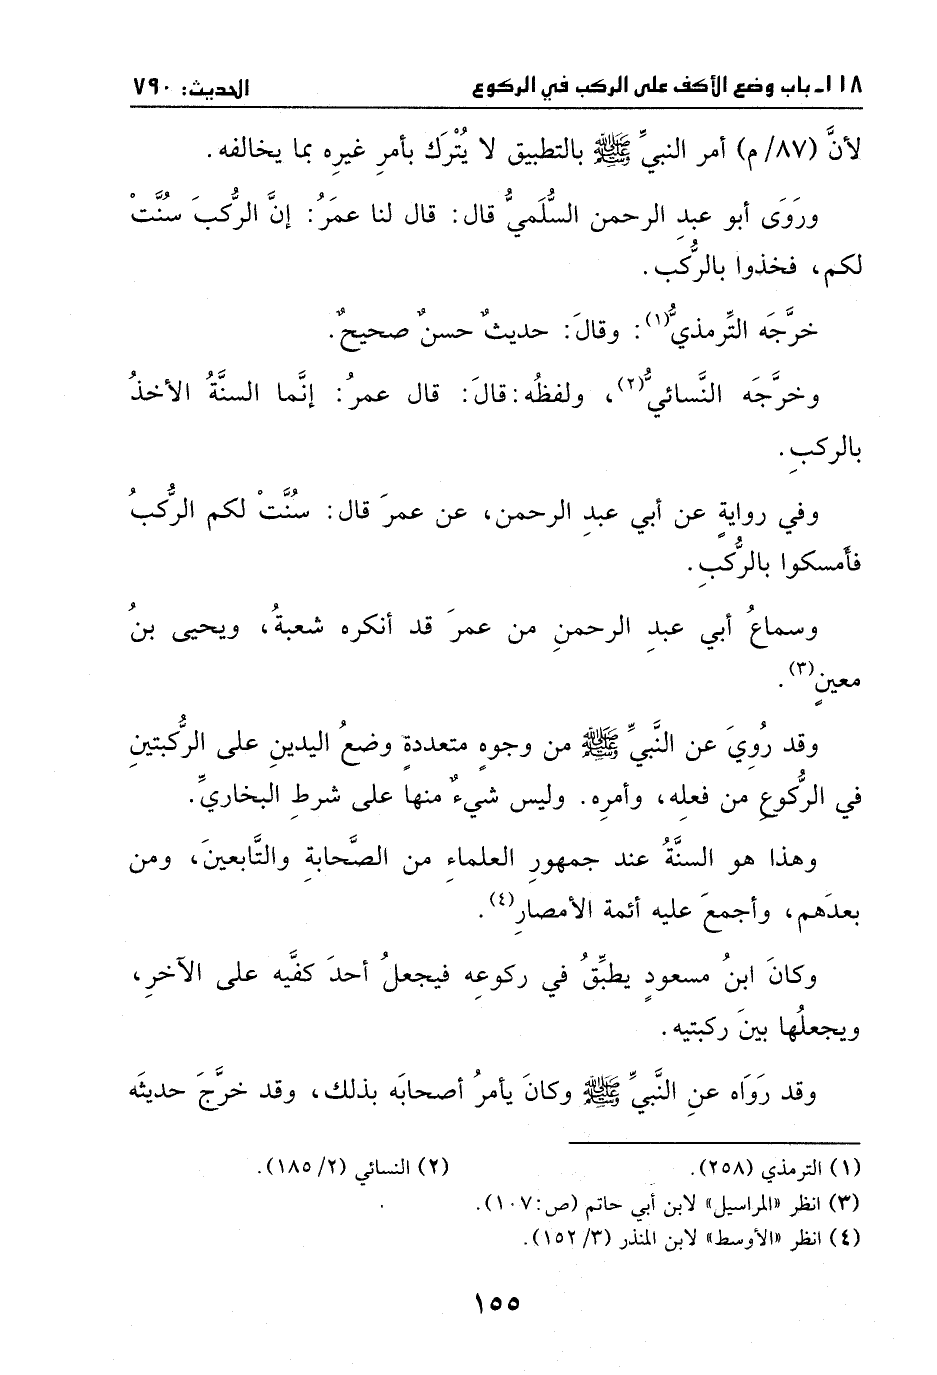 ١١٨ـ باب وضع الأكف على الركب في الركوع الحديث: ٧٩٠
لأنَّ (٨٧/ م) أمر النبيِّ ﷺ بالتطبيق لا يُتْرَك بأمرِ غيرِه بما يخالفه.
ورَوَى أبو عبدِ الرحمن السُّلَميُّ قال: قال لنا عمَرُ: إنَّ الرُّكبَ سُنَّتْ
لكم، فخذوا بالرُّكبِ.
خرَّجَه التِّرمذيُّ(١): وقالَ: حديثٌ حسنٌ صحيحٌ.
وخرَّجَه النَّسائيُّ(٢)، ولفظُه: قالَ: قال عمرُ: إنَّما السنَّةُ الأخذُ
بالركبِ.
وفي روايةٍ عن أبي عبدِ الرحمن، عن عمرَ قال: سُنَّتْ لكم الرُّكبُ
فأَمسكوا بالرُّكبِ.
وسماعُ أبي عبدِ الرحمنِ من عمرَ قد أنكره شعبةُ، ويحيى بنُ
معينٍ(٣).
وقد رُوِيَ عن النَّبيِّ ﷺ من وجوهٍ متعددةٍ وضعُ اليدينِ على الرُّكبتينِ
في الرُّكوعِ من فعلِه، وأمرِه. وليس شيءٌ منها على شرطِ البخاريِّ.
وهذا هو السنَّةُ عند جمهورِ العلماءِ من الصَّحابةِ والتَّابعينَ، ومن
بعدَهم، وأجمعَ عليه أئمة الأمصارِ(٤).
وكانَ ابنُ مسعودٍ يطبِّقُ في ركوعِه فيجعلُ أحدَ كفَّيه على الآخرِ،
ويجعلُها بينَ ركبتيه.
وقد رَوَاه عنِ النَّبيِّ ﷺ وكانَ يأمرُ أصحابَه بذلك، وقد خرَّجَ حديثَه
(١) الترمذي (٢٥٨). (٢) النسائي (٢/ ١٨٥).
(٣) انظر «المراسيل» لابن أبي حاتم (ص:١٠٧).
(٤) انظر «الأوسط» لابن المنذر (٣/ ١٥٢).
١٥٥